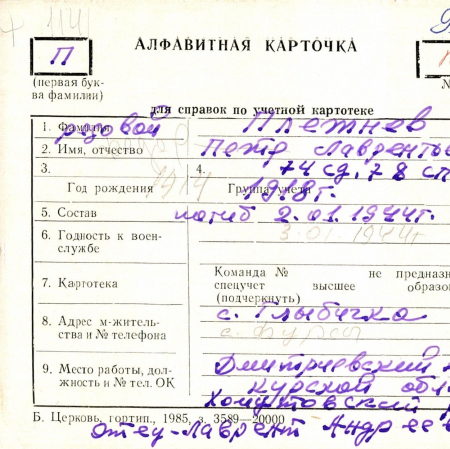 1141
П
АЛФАВИТНАЯ КАРТОЧКА
(первая бук-
ва фамилии)
№
для справок по учетной картотеке
1. Фамилия рядовой Плетнев
2. Имя, отчество Петр Лавренть
3. 4. 74 сд, 78 сп
Год рождения 1914 Группа учета 1918г.
5. Состав погиб 2.01.1944г.
6. Годность к воен-
службе
3.01.1944г
7. Картотека
Команда № не предназн
спецучет высшее образо
(подчеркнуть)
8. Адрес м-житель-
ства и № телефона
с. Глыбочка
с. Фурсы
9. Место работы, дол-
жность и № тел. ОК
Дмитриевский
Курской обл
Хомутовский р
Б. Церковь, гортип., 1985, з. 3589—20000
отец - Лаврент Андрее